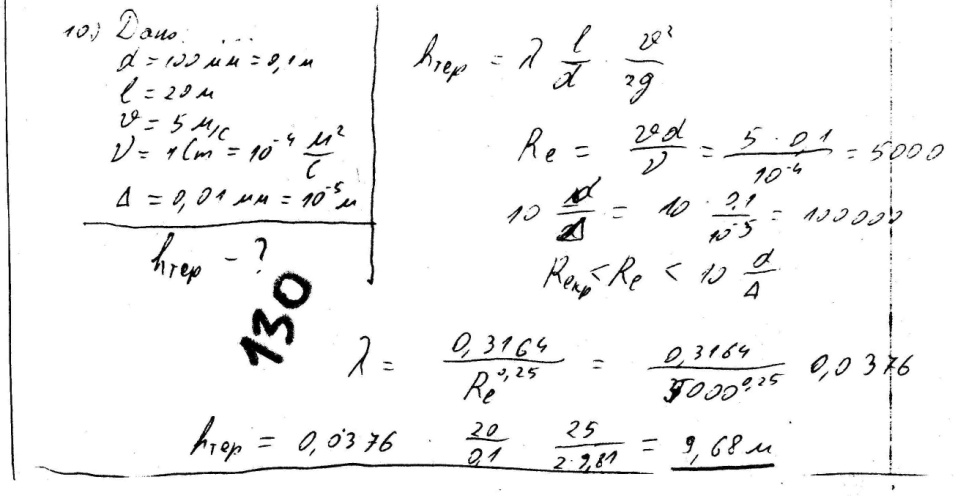 10) Дано: ...
d = 100 мм = 0,1 м
l = 20 м
υ = 5 м/с
ν = 1 Ст = 10⁻⁴ м²/с
Δ = 0,01 мм = 10⁻⁵ м
hтер - ?
130
hтер = λ l/d · υ²/2g
Re = υd/ν = 5 · 0,1/10⁻⁴ = 5000
10 d/Δ = 10 · 0,1/10⁻⁵ = 100000
Reкр < Re < 10 d/Δ
λ = 0,3164/Re^0,25 = 0,3164/5000^0,25 0,0376
hтер = 0,0376 · 20/0,1 · 25/2·9,81 = 9,68 м